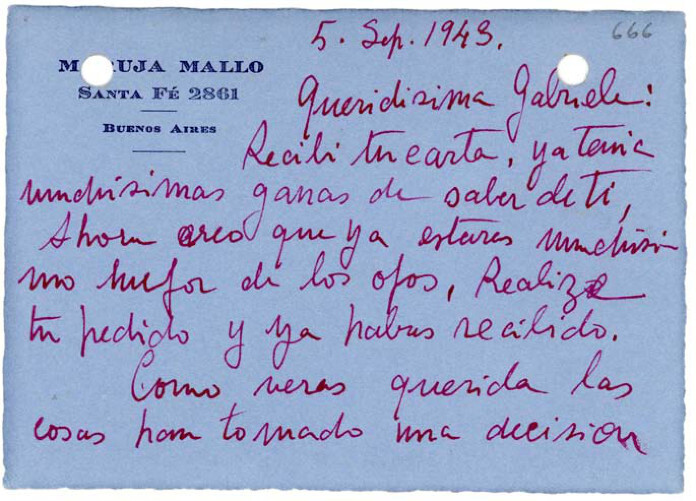 5. Sep. 1943.
666
MARUJA MALLO
SANTA FÉ 2861
BUENOS AIRES
Queridisima Gabriela:
Recibi tu carta, ya tenia
muchisimas ganas de saber de ti,
Ahora creo que ya estaras muchisi
mo mejor de los ojos, Realize
tu pedido y ya habras recibido.
Como veras querida las
cosas han tomado una decision